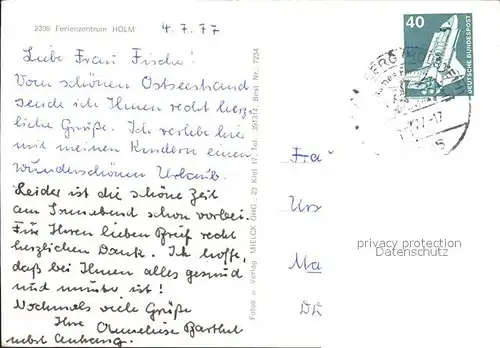 2306 Ferienzentrum HOLM
4.7.77
Liebe Frau Fische!
Vom schönen Ostseestrand
sende ich Ihnen recht herz-
liche Grüße. Ich verlebe hier
mit meinen Kindern einen
wunderschönen Urlaub.
Leider ist die schöne Zeit
am Sonnabend schon vorbei.
Für Ihren lieben Brief recht
herzlichen Dank. Ich hoffe,
daß bei Ihnen alles gesund
und munter ist!
Nochmals viele Grüße
Ihre Anneliese Barthel
nebst Anhang.
Fotos u. Verlag MIELCK OHG, 23 Kiel 17, Tel. 391314, Best. Nr. 7234
40
DEUTSCHE BUNDESPOST
Fra
Urs
Ma
DD
privacy protection
Datenschutz